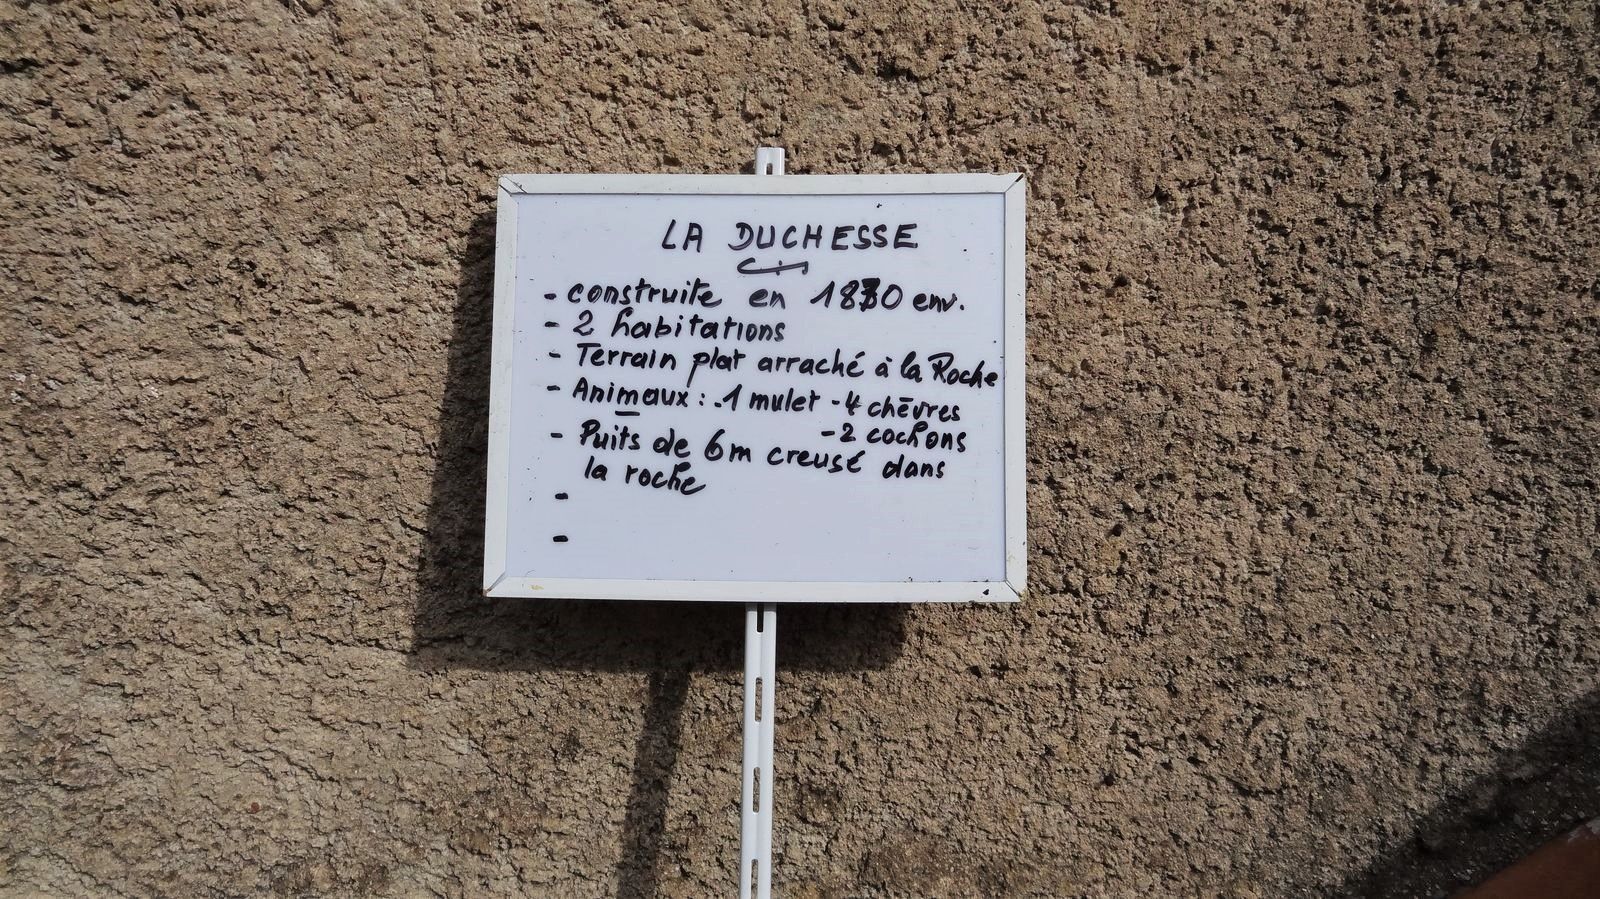 LA DUCHESSE
- construite en 1870 env.
- 2 habitations
- Terrain plat arraché à la Roche
- Animaux : - 1 mulet - 4 chèvres
- 2 cochons
- Puits de 6m creusé dans
la roche
-
-